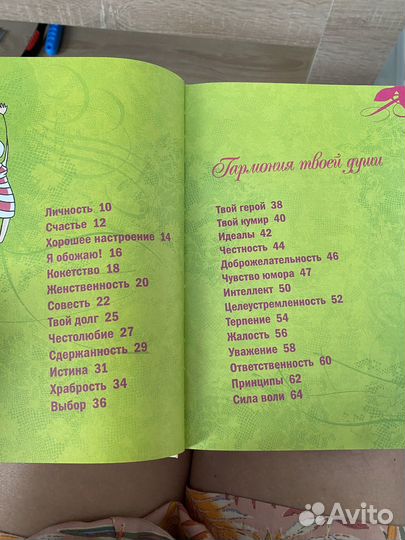 Личность 10
Счастье 12
Хорошее настроение 14
Я обожаю! 16
Кокетство 18
Женственность 20
Совесть 22
Твой долг 25
Честолюбие 27
Сдержанность 29
Истина 31
Храбрость 34
Выбор 36
Гармония твоей души
Твой герой 38
Твой кумир 40
Идеалы 42
Честность 44
Доброжелательность 46
Чувство юмора 47
Интеллект 50
Целеустремленность 52
Терпение 54
Жалость 56
Уважение 58
Ответственность 60
Принципы 62
Сила воли 64
Avito